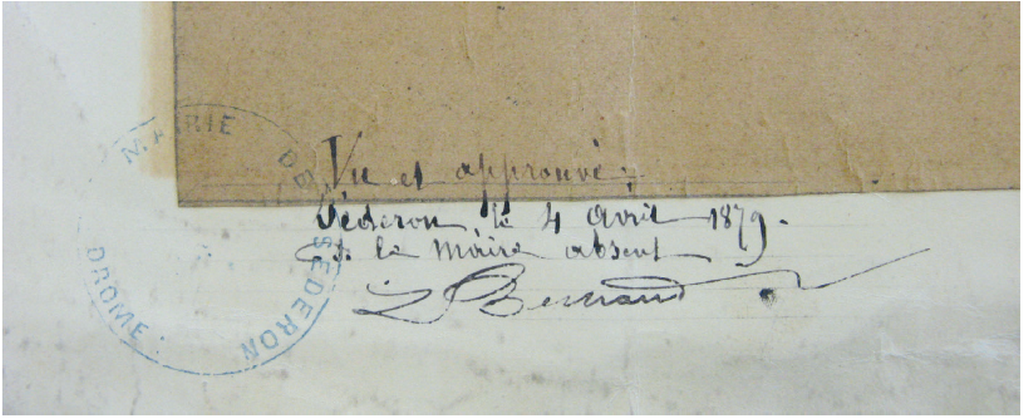 MAIRIE DE SEDERON
DROME
Vu et approuvé :
Séderon le 4 avril 1879.
la Maire absent
Bertrand